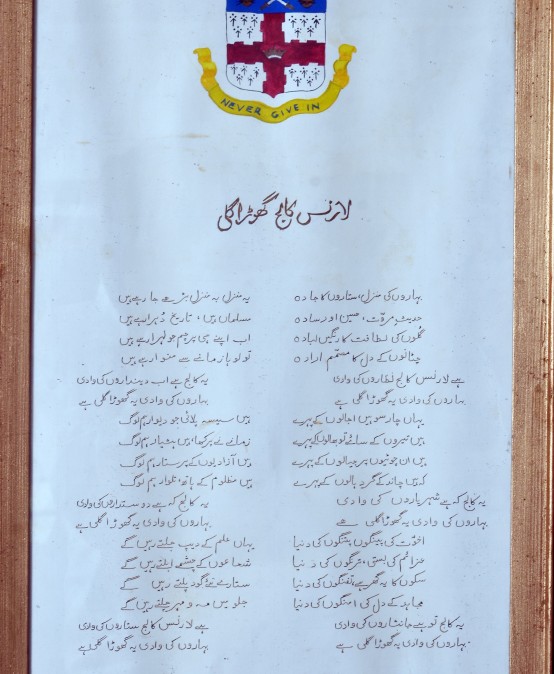 NEVER GIVE IN
لارنس کالج گھوڑا گلی
بہاروں کی منزل، ستاروں کا جادہ
حدیثِ مروّت، حسین اور سادہ
گُلوں کی لطافت کا رنگیں لبادہ
چٹانوں کے دل کا مصمّم ارادہ
ہے لارنس کالج نظاروں کی وادی
بہاروں کی وادی یہ گھوڑا گلی ہے
یہاں چار سو ہیں اجالوں کے پہرے
ہیں تیروں کے سائے تو بھالوں کے پہرے
ہیں ان چوٹیوں پر جیالوں کے پہرے
کہ ہیں چاند کے گرد ہالوں کے پہرے
یہ کالج کہ ہے شہریاروں کی وادی
بہاروں کی وادی یہ گھوڑا گلی ہے
اخوّت کی پینگوں پتنگوں کی دنیا
عزائم کی بستی، ترنگوں کی دنیا
سکوں کا یہ گھر ہے، تفنگوں کی دنیا
مجاہد کے دل کی امنگوں کی دنیا
یہ کالج تو ہے جانثاروں کی وادی
بہاروں کی وادی یہ گھوڑا گلی ہے
یہ منزل بہ منزل بڑھے جا رہے ہیں
مسلماں ہیں، تاریخ دُہرا رہے ہیں
اب اپنے ہی پرچم جو لہرا رہے ہیں
تو لوہا زمانے سے منوا رہے ہیں
یہ کالج ہے اب دینداروں کی وادی
بہاروں کی وادی یہ گھوڑا گلی ہے
ہیں سیسہ پلائی جو دیوار ہم لوگ
زمانے نے پرکھا، ہیں ہشیار ہم لوگ
ہیں آزادیوں کے پرستار ہم لوگ
ہیں مظلوم کے ہاتھ، تلوار ہم لوگ
یہ کالج کہ ہے دوستداروں کی وادی
بہاروں کی وادی یہ گھوڑا گلی ہے
یہاں علم کے دیپ جلتے رہیں گے
شعاعوں کے چشمے ابلتے رہیں گے
ستارے گود پلتے رہیں گے
جلو میں مہ و مہر چلتے رہیں گے
ہے لارنس کالج ستاروں کی وادی
بہاروں کی وادی یہ گھوڑا گلی ہے